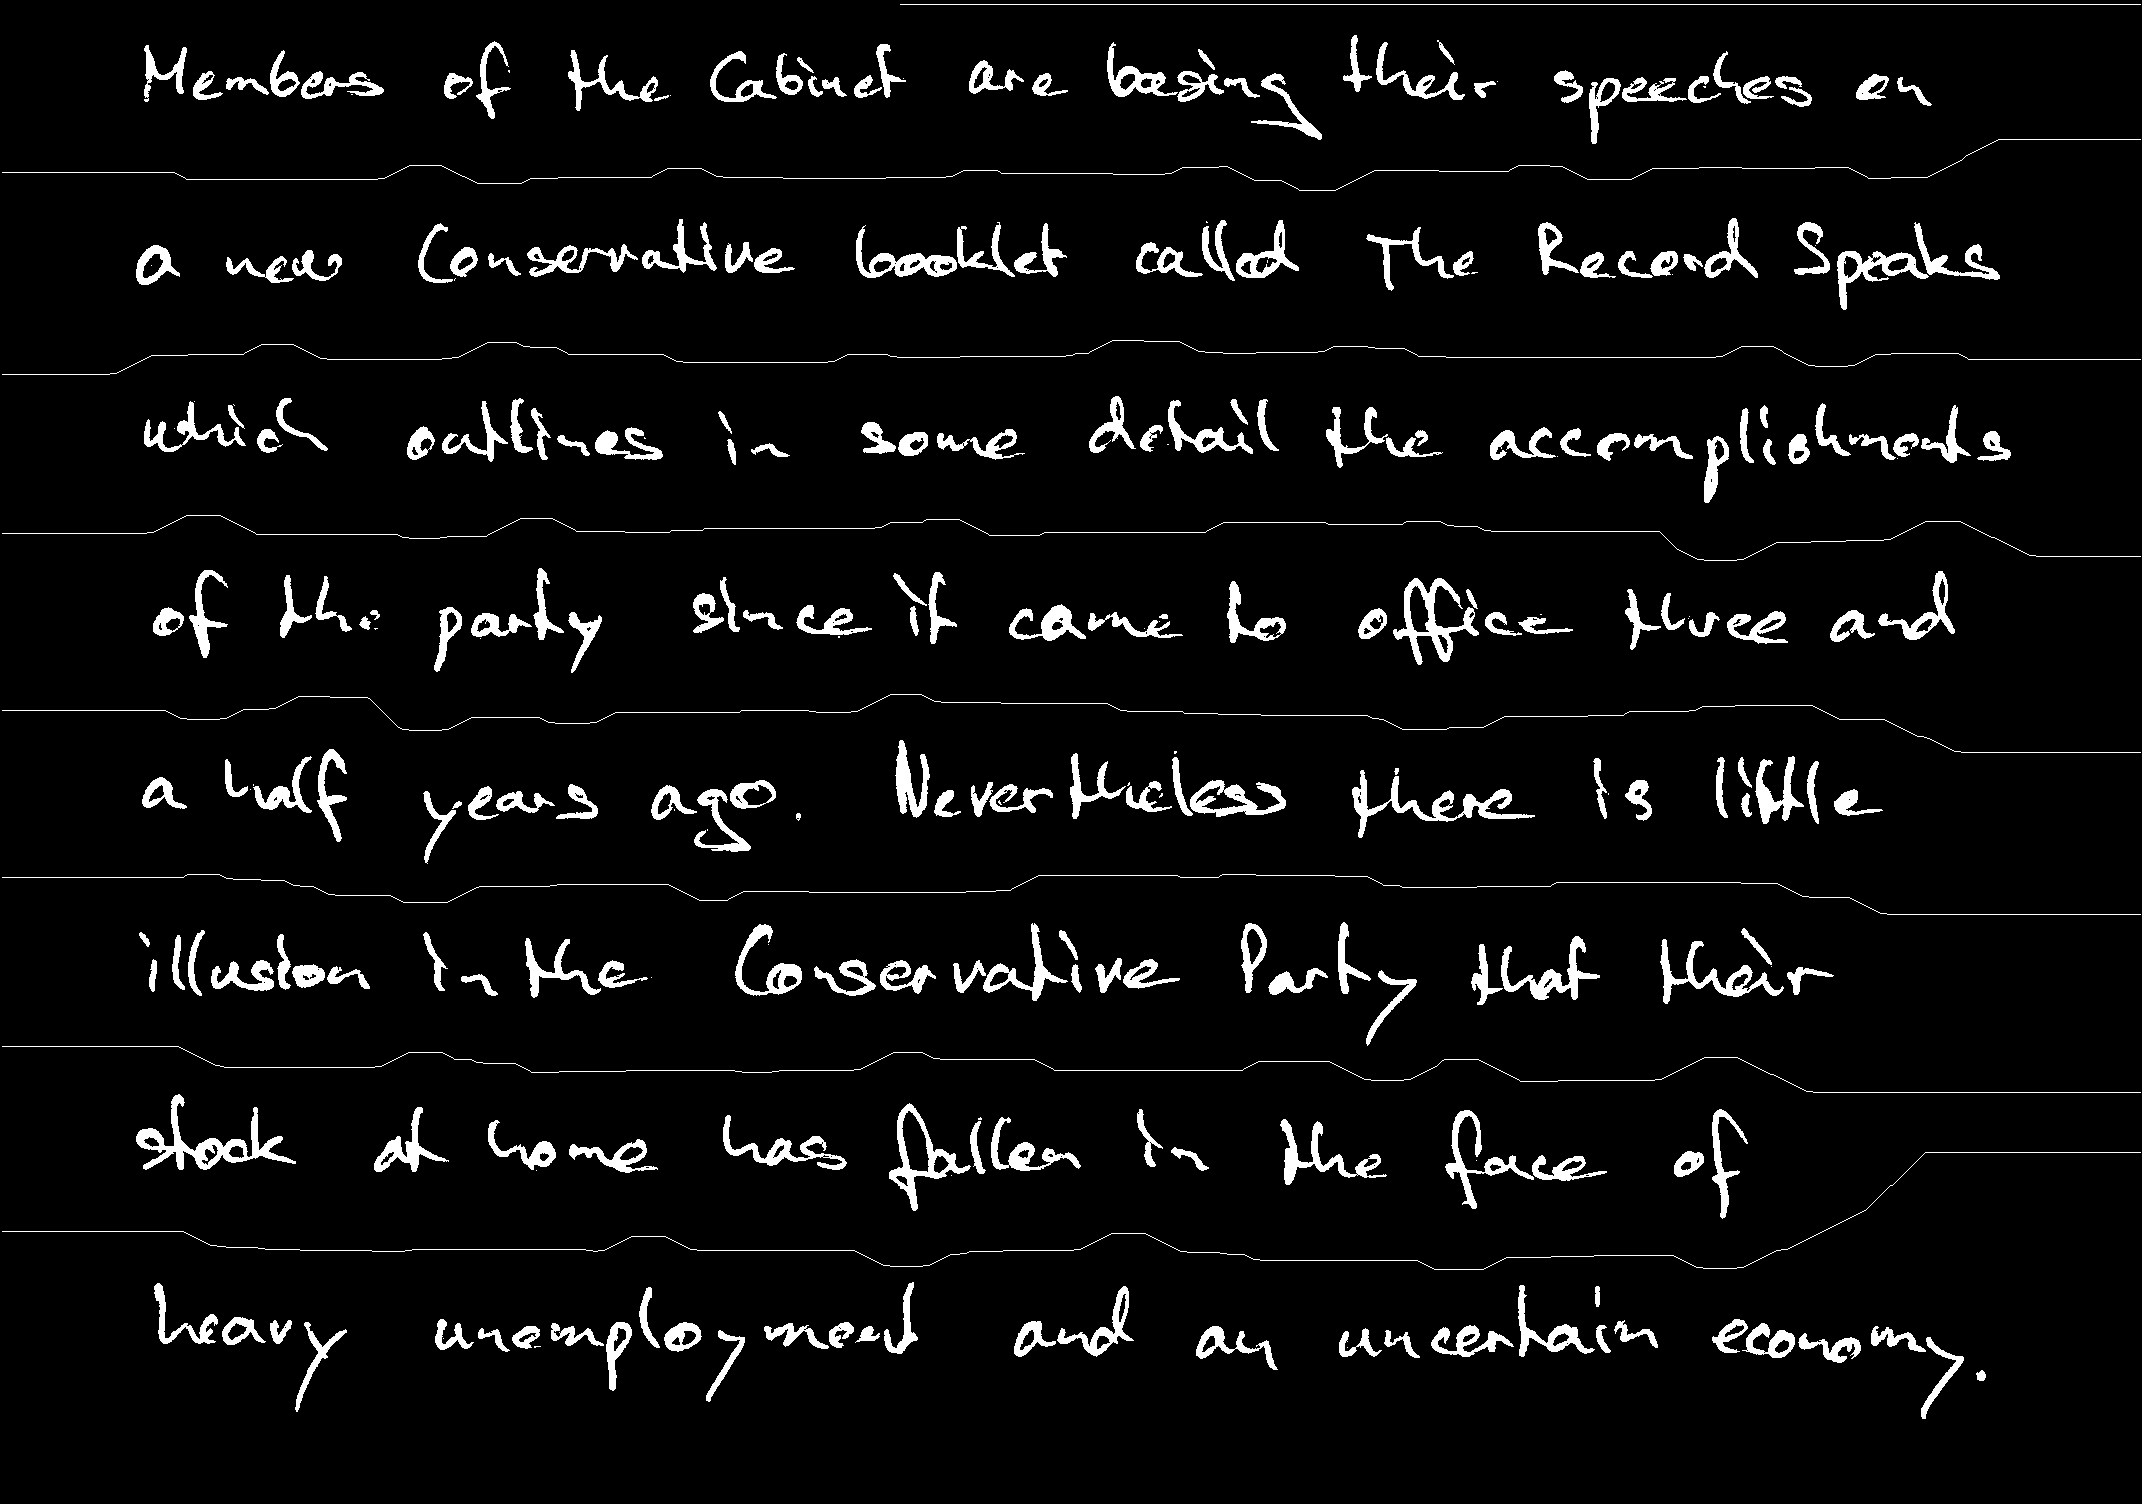 Members of the Cabinet are basing their speeches on
a new Conservative booklet called The Record Speaks
which outlines in some detail the accomplishments
of the party since it came to office three and
a half years ago. Nevertheless there is little
illusion in the Conservative Party that their
stock at home has fallen in the face of
heavy unemployment and an uncertain economy.